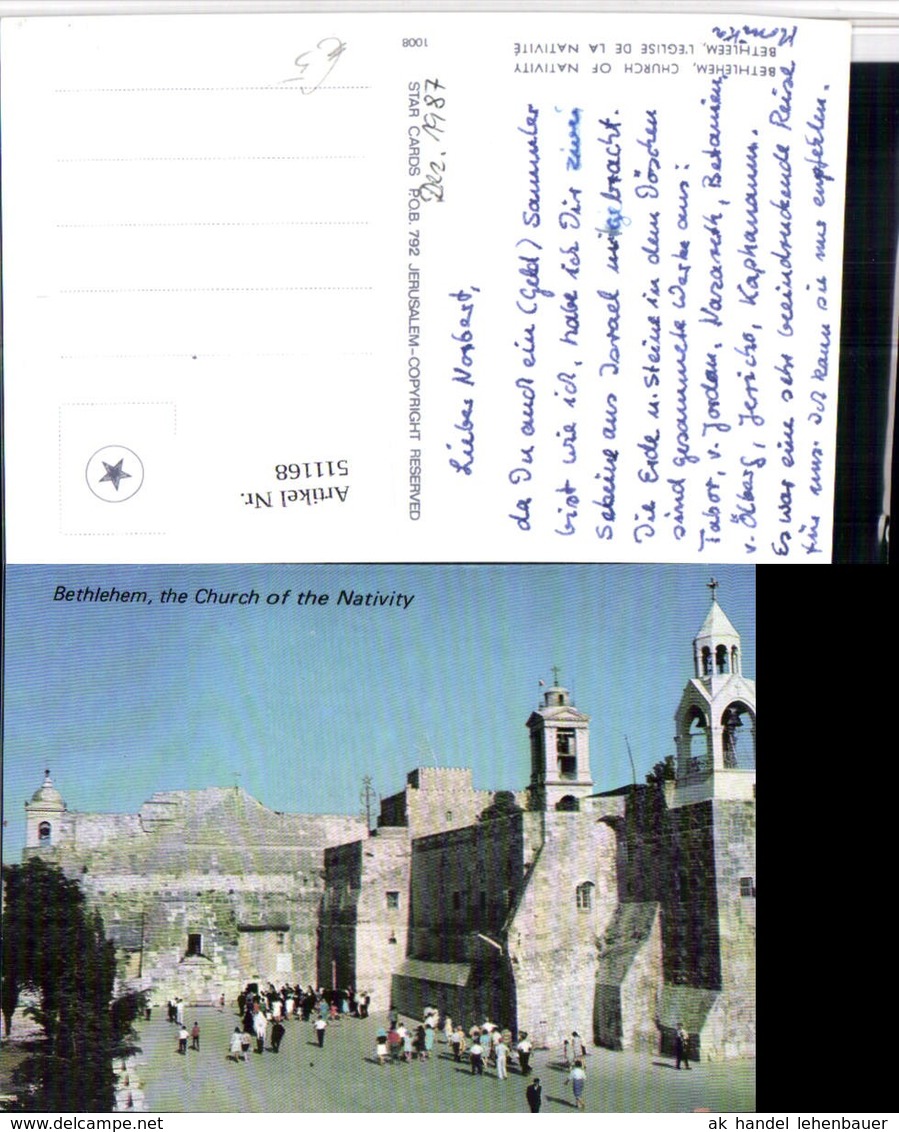 BETHLEHEM, CHURCH OF NATIVITY
BETHLÉEM, L'ÉGLISE DE LA NATIVITÉ
1008
STAR CARDS P.O.B. 792 JERUSALEM-COPYRIGHT RESERVED
Dez. 1987
Artikel Nr.
511168
Lieber Norbert,
da Du auch ein (Geld) Sammler
bist wie ich, habe ich Dir zwei
Scheine aus Israel mitgebracht.
Die Erde u. Steine in dem Döschen
sind gesammelte Werke aus:
Tabor, v. Jordan, Nazareth, Betanien,
v. Ölberg, Jericho, Kapharnaum.
Es war eine sehr beeindruckende Reise
für uns. Ich kann sie nur empfehlen.
Monika
Bethlehem, the Church of the Nativity
ak handel lehenbauer